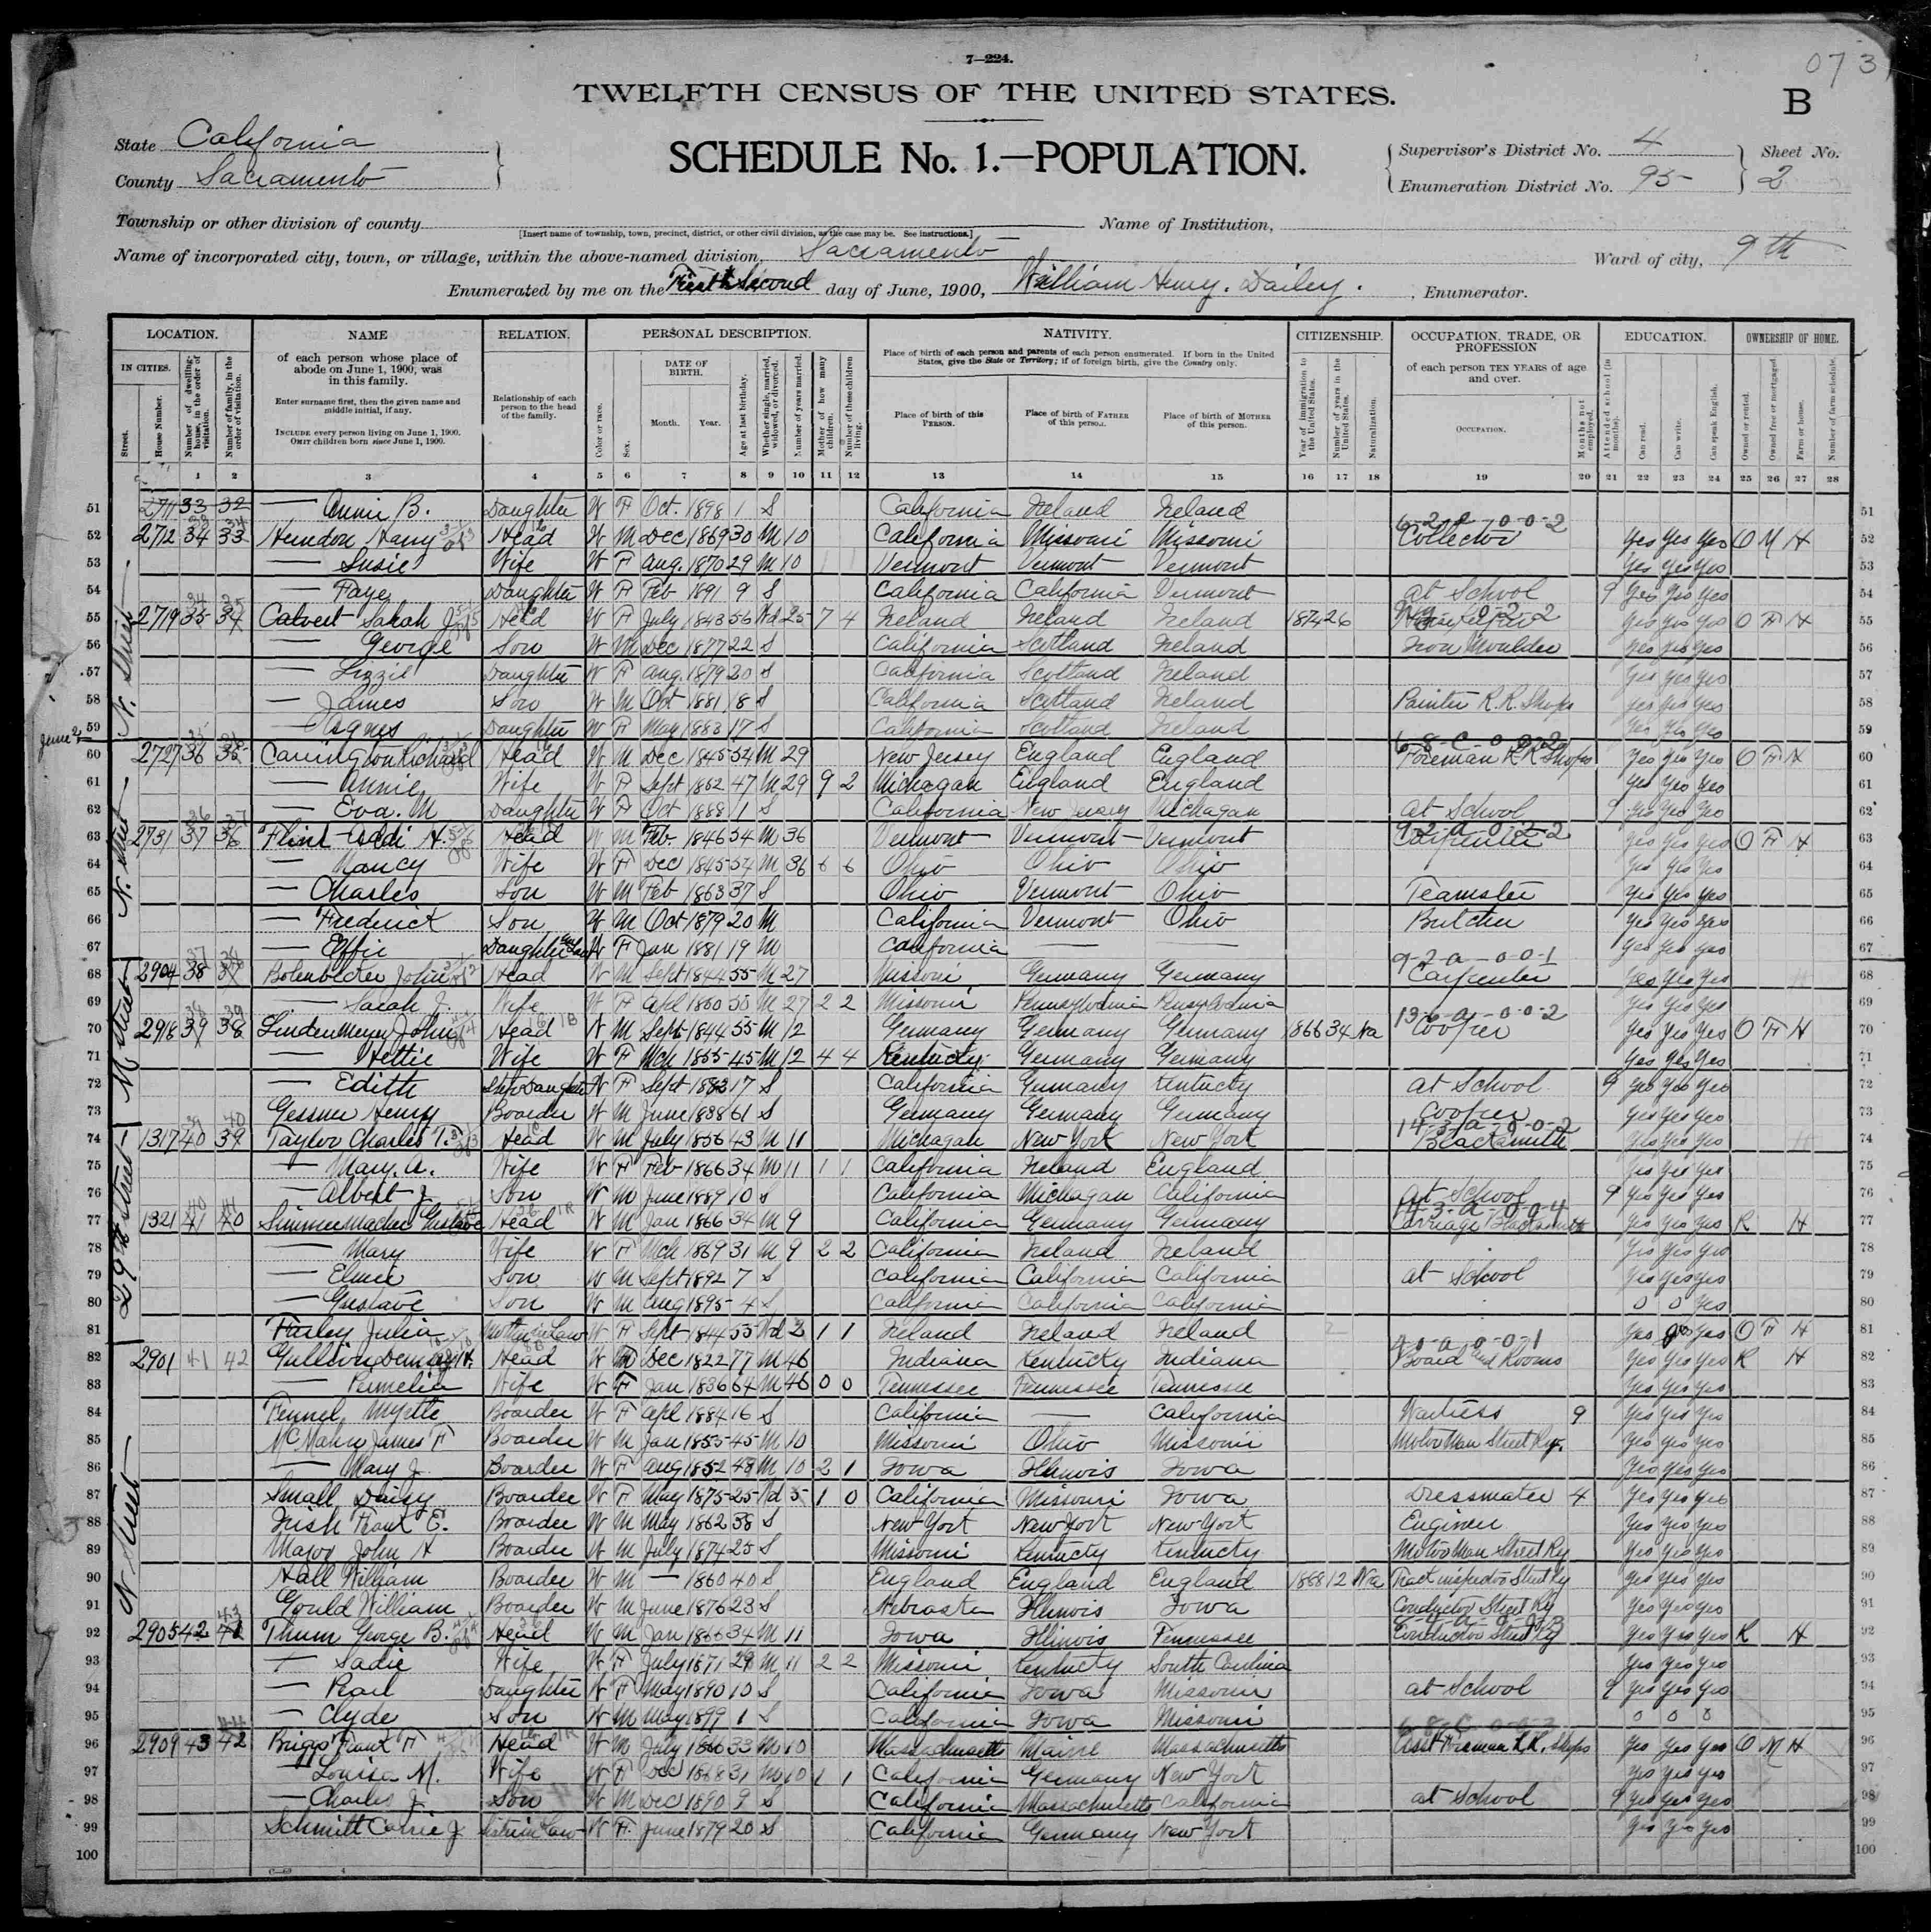 7—224.
073
TWELFTH CENSUS OF THE UNITED STATES.
B
State California
County Sacramento
SCHEDULE No. 1.—POPULATION.
Supervisor's District No. 4
Enumeration District No. 95
Sheet No. 2
Township or other division of county
[Insert name of township, town, precinct, district, or other civil division, as the case may be. See instructions.]
Name of Institution,
Name of incorporated city, town, or village, within the above-named division, Sacramento
Ward of city, 9th
Enumerated by me on the Second day of June, 1900, William Henry. Dailey. , Enumerator.
LOCATION. NAME RELATION. PERSONAL DESCRIPTION. NATIVITY. CITIZENSHIP. OCCUPATION, TRADE, OR PROFESSION EDUCATION. OWNERSHIP OF HOME.
IN CITIES. Street. House Number. Number of dwelling-house, in the order of visitation. Number of family, in the order of visitation.
of each person whose place of abode on June 1, 1900, was in this family.
Enter surname first, then the given name and middle initial, if any.
INCLUDE every person living on June 1, 1900. OMIT children born since June 1, 1900.
Relationship of each person to the head of the family.
Color or race. Sex. DATE OF BIRTH. Month. Year. Age at last birthday. Whether single, married, widowed, or divorced. Number of years married. Mother of how many children. Number of these children living.
Place of birth of each person and parents of each person enumerated. If born in the United States, give the State or Territory; if of foreign birth, give the Country only.
Place of birth of this PERSON. Place of birth of FATHER of this person. Place of birth of MOTHER of this person.
Year of immigration to the United States. Number of years in the United States. Naturalization.
of each person TEN YEARS of age and over.
OCCUPATION. Months not employed.
Attended school (in months). Can read. Can write. Can speak English.
Owned or rented. Owned free or mortgaged. Farm or house. Number of farm schedule.
1 2 3 4 5 6 7 8 9 10 11 12 13 14 15 16 17 18 19 20 21 22 23 24 25 26 27 28
51 2711 33 32 — Annie B. Daughter W F Oct. 1898 1 S California Ireland Ireland 51
52 2712 34 33 Herndon Harry Head W M Dec 1869 30 M 10 California Missouri Missouri Collector Yes Yes Yes O M H 52
53 — Susie Wife W F Aug. 1870 29 M 10 Vermont Vermont Vermont Yes Yes Yes 53
54 — Faye Daughter W F Feb 1891 9 S California California Vermont At School 9 Yes Yes Yes 54
55 2719 35 34 Calvert Sarah J Head W F July 1843 56 Wd 25 7 4 Ireland Ireland Ireland 1874 26 Yes Yes Yes O F H 55
56 — George Son W M Dec 1877 22 S California Scotland Ireland Iron Moulder Yes Yes Yes 56
57 — Lizzie Daughter W F Aug. 1879 20 S California Scotland Ireland Yes Yes Yes 57
58 — James Son W M Oct 1881 18 S California Scotland Ireland Painter R.R. Shops Yes Yes Yes 58
59 — Agnes Daughter W F May 1883 17 S California Scotland Ireland Yes Yes Yes 59
June 2
60 2727 36 35 Carrington Richard Head W M Dec 1845 54 M 29 New Jersey England England Foreman R R Shops Yes Yes Yes O F H 60
61 — Annie Wife W F Sept 1852 47 M 29 9 2 Michagan England England Yes Yes Yes 61
62 — Eva. M Daughter W F Oct 1888 11 S California New Jersey Michagan At School 9 Yes Yes Yes 62
63 2731 37 36 Flint Addi H. Head W M Feb. 1846 54 M 36 Vermont Vermont Vermont Carpenter Yes Yes Yes O F H 63
64 — Nancy Wife W F Dec 1845 54 M 36 6 6 Ohio Ohio Ohio Yes Yes Yes 64
65 — Charles Son W M Feb 1863 37 S Ohio Vermont Ohio Teamster Yes Yes Yes 65
66 — Frederick Son W M Oct 1879 20 M California Vermont Ohio Butcher Yes Yes Yes 66
67 — Effie Daughter in Law W F Jan 1881 19 M California — — Yes Yes Yes 67
68 2904 38 37 Bohenbecker John Head W M Sept 1844 55 M 27 Missouri Germany Germany Carpenter Yes Yes Yes 68
69 — Sarah J. Wife W F Apl 1860 M 27 2 2 Missouri Pennsylvania Pensylvania Yes Yes Yes 69
70 2918 39 38 Lindenmeyer John Head W M Sept 1844 55 M 12 Germany Germany Germany 1866 34 Na Cooper Yes Yes Yes O F H 70
71 — Hettie Wife W F Mch 1855 45 M 12 4 4 Kentucky Germany Germany Yes Yes Yes 71
72 — Edith Step Daughter W F Sept 1883 17 S California Germany Kentucky At School 9 Yes Yes Yes 72
73 Gessner Henry Boarder W M June 1838 61 S Germany Germany Germany Cooper Yes Yes Yes 73
74 1317 40 39 Taylor Charles T. Head W M July 1856 43 M 11 Michagan New York New York Blacksmith Yes Yes Yes 74
75 — Mary. A. Wife W F Feb 1866 34 M 11 1 1 California Ireland England Yes Yes Yes 75
76 — Albert J Son W M June 1889 10 S California Michagan California At School 9 Yes Yes Yes 76
77 1321 41 40 Simmermacher Gustave Head W M Jan 1866 34 M 9 California Germany Germany Carriage Blacksmith Yes Yes Yes R H 77
78 — Mary Wife W F Mch 1869 31 M 9 2 2 California Ireland Ireland Yes Yes Yes 78
79 — Elmer Son W M Sept 1892 7 S California California California At School Yes Yes Yes 79
80 — Gustave Son W M Aug 1895 4 S California California California 0 0 Yes 80
81 Farley Julia Mother in Law W F Sept 1844 55 Wd 2 1 1 Ireland Ireland Ireland Yes Yes Yes O F H 81
82 2901 41 42 Gullion Head W M Dec 1822 77 M 46 Indiana Kentucky Indiana Board and Rooms Yes Yes Yes R H 82
83 — Permelia Wife W F Jan 1836 64 M 46 0 0 Tennessee Tennessee Tennessee Yes Yes Yes 83
84 Fennel, Myrtle Boarder W F Apl 1884 16 S California — California Waitress 9 Yes Yes Yes 84
85 McMahn James F Boarder W M Jan 1855 45 M 10 Missouri Ohio Missouri Motor Man Street Ry. Yes Yes Yes 85
86 — Mary J. Boarder W F Aug 1852 48 M 10 2 1 Iowa Illinois Iowa Yes Yes Yes 86
87 Small, Daisy Boarder W F May 1875 25 Wd 5 1 0 California Missouri Iowa Dressmaker 4 Yes Yes Yes 87
88 Irish Frank E. Boarder W M May 1862 38 S New York New York New York Engineer Yes Yes Yes 88
89 Major John H Boarder W M July 1874 25 S Missouri Kentucky Kentucky Motor Man Street Ry Yes Yes Yes 89
90 Hall William Boarder W M — 1860 40 S England England England 1888 12 Na Tract inspector Street Ry Yes Yes Yes 90
91 Gould William Boarder W M June 1876 23 S Nebraska Illinois Iowa Conductor Street Ry Yes Yes Yes 91
92 2905 42 41 Thum George B. Head W M Jan 1866 34 M 11 Iowa Illinois Tennessee Conductor Street Ry Yes Yes Yes R H 92
93 — Sadie Wife W F July 1871 28 M 11 2 2 Missouri Kentucky South Carolina Yes Yes Yes 93
94 — Pearl Daughter W F May 1890 10 S California Iowa Missouri At School 9 Yes Yes Yes 94
95 — Clyde Son W M May 1899 1 S California Iowa Missouri 0 0 0 95
96 2909 43 42 Briggs Frank F Head W M July 1866 33 M 10 Massachusetts Maine Massachusetts Asst Foreman R.R. Shops Yes Yes Yes O M H 96
97 — Louisa M. Wife W F Dec 1868 31 M 10 1 1 California Germany New York Yes Yes Yes 97
98 — Charles J. Son W M Dec 1890 9 S California Massachusetts California At School 9 Yes Yes Yes 98
99 Schmitt Carrie J Sister in Law W F June 1879 20 S California Germany New York Yes Yes Yes 99
100 100
N. Street
N. Street
M Street
29th Street
N Street